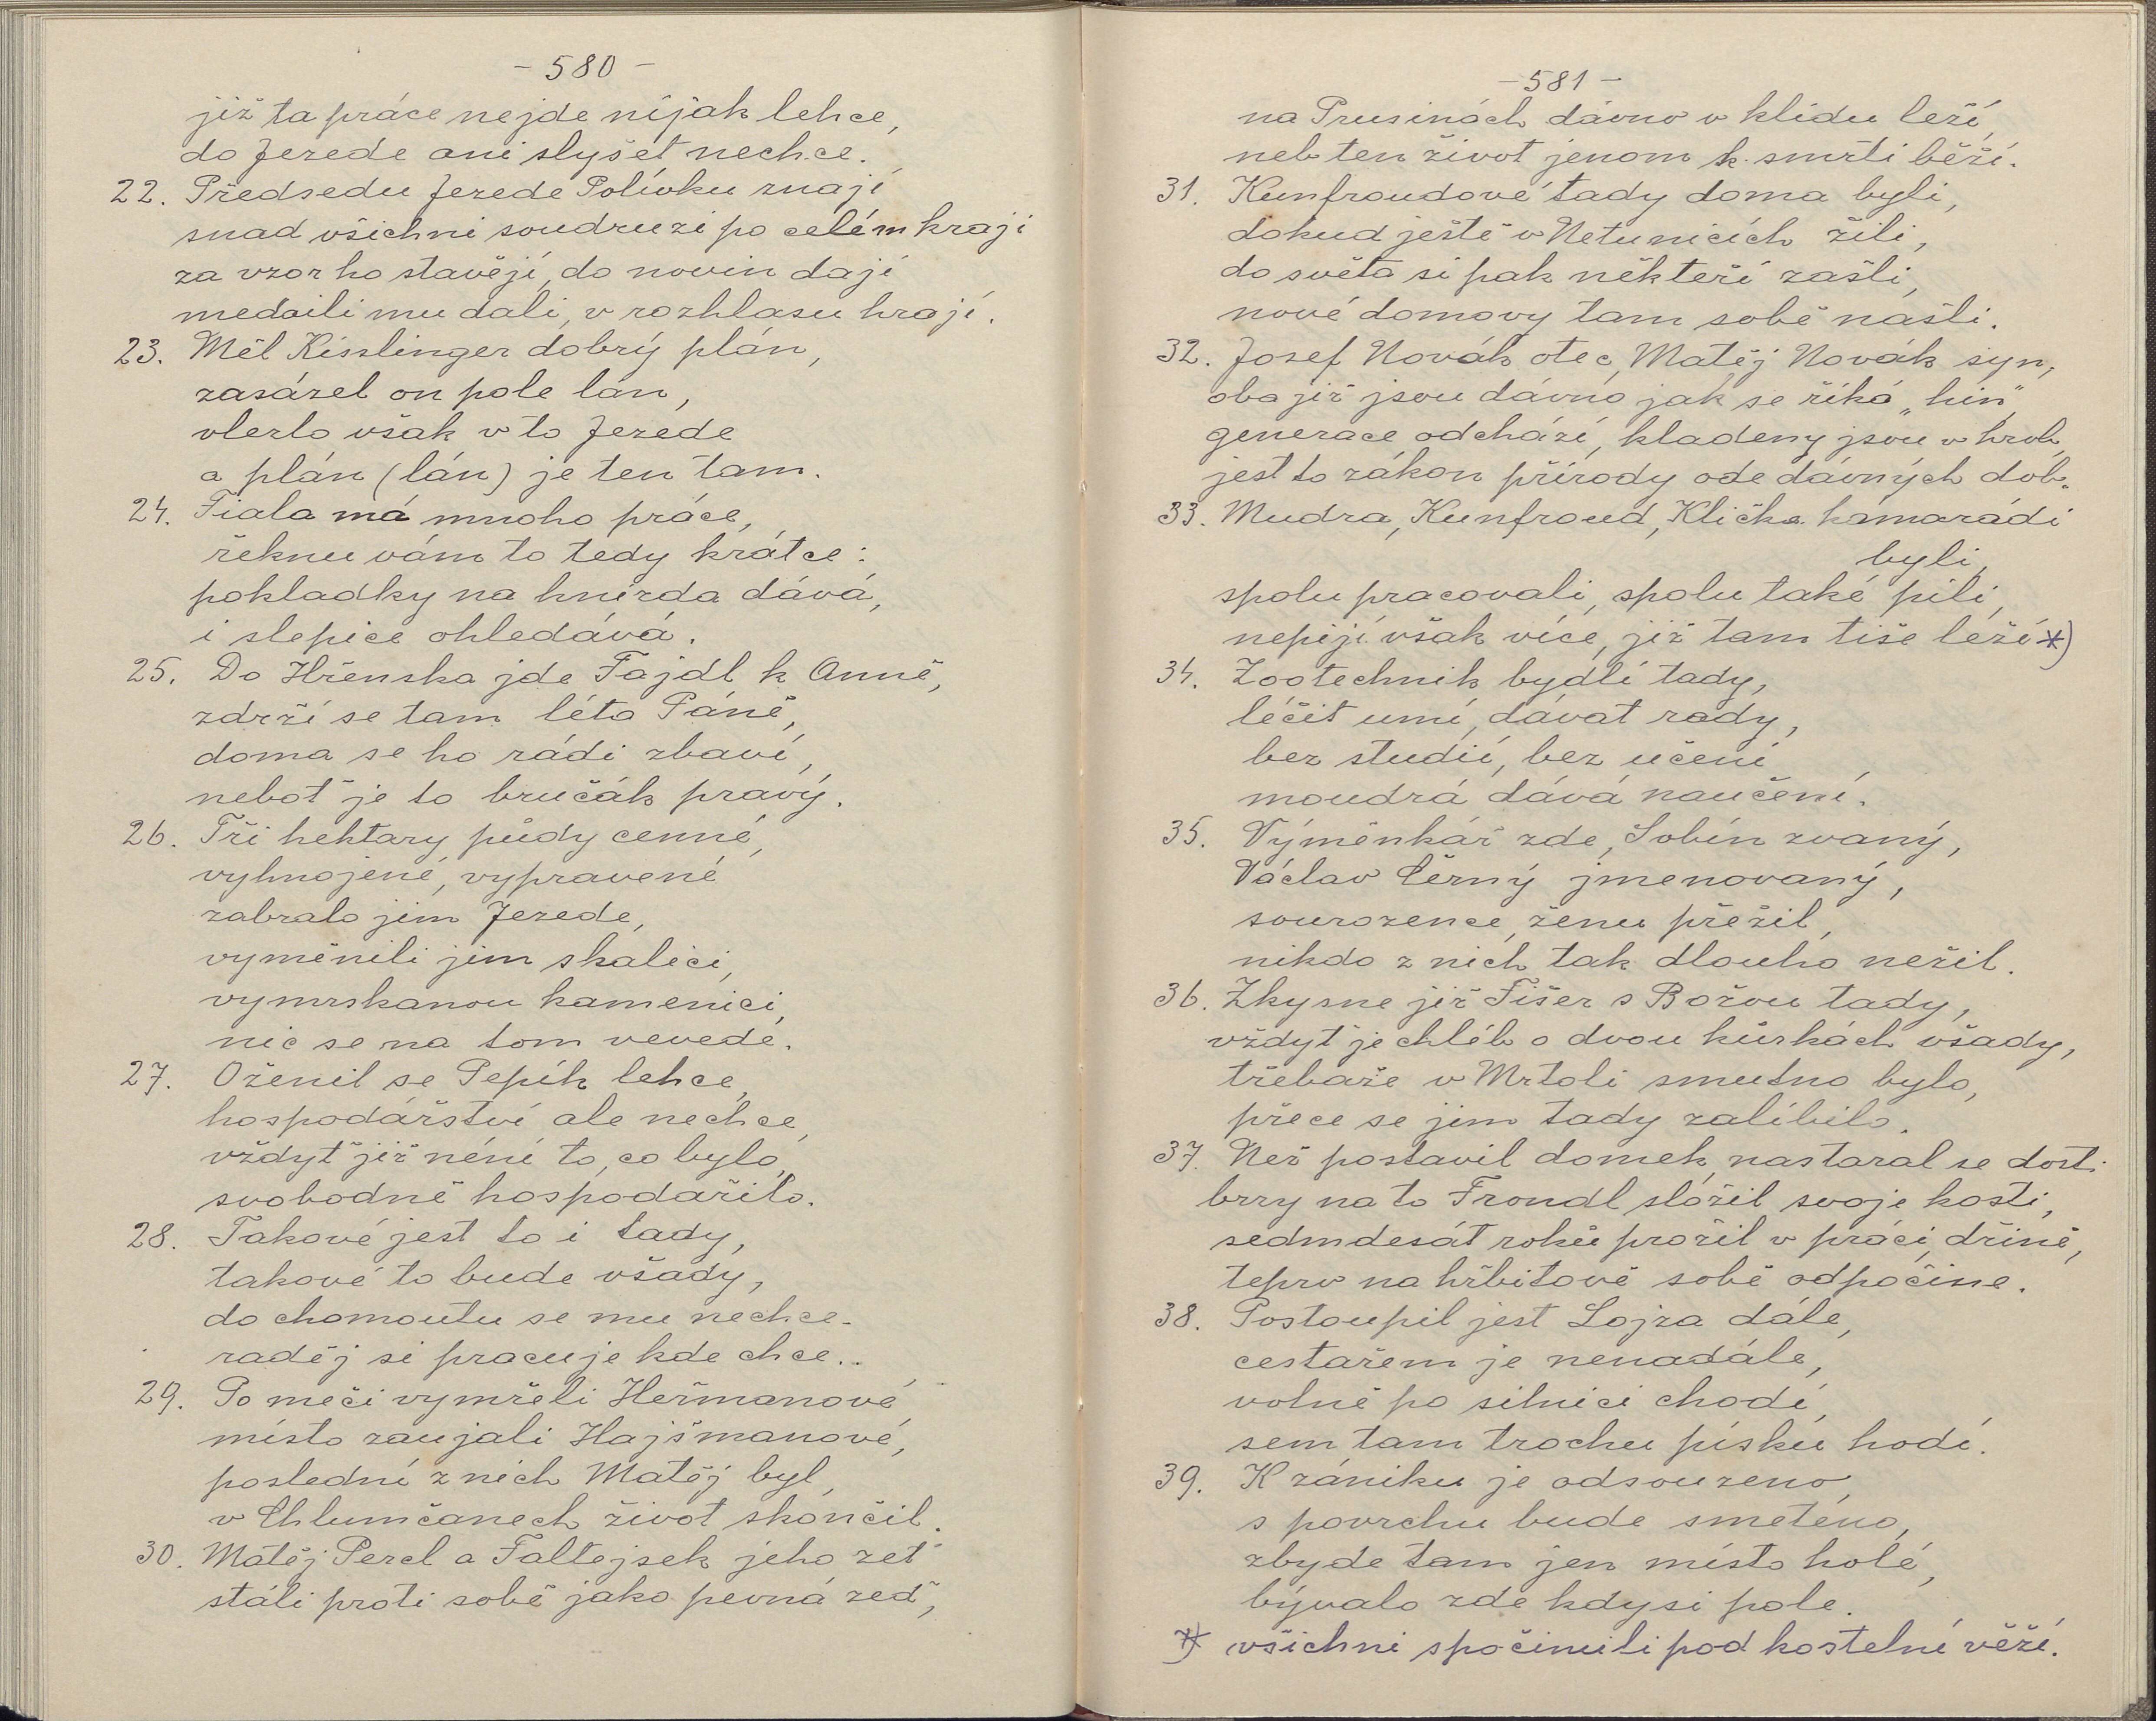 - 580 -
již ta práce nejde nijak lehce,
do Jezede ani slyšet nechce.
22. Předsedu Jezede Polívku znají
snad všichni soudruzi po celém kraji
za vzor ho stavějí, do novin dají
medaili mu dali, v rozhlasu hrají.
23. Měl Kisslinger dobrý plán,
zasázel on pole lán,
vlezlo však v to Jezede
a plán (lán) je ten tam.
24. Fiala má mnoho práce,
řeknu vám to tedy krátce:
pokladky na hnízda dává,
i slepice ohledává.
25. Do Hřenska jde Fajdl k Anně,
zdrží se tam léta Páně,
doma se ho rádi zbaví,
neboť je to bručák pravý.
26. Tři hektary půdy cenné,
vyhnojené, vypravené
zabralo jim Jezede,
vyměnili jim skalici,
vymrskanou kamenici,
nic se na tom nevede.
27. Oženil se Pepík lehce,
hospodářství ale nechce,
vždyť již néní to, co bylo,
svobodně hospodařilo.
28. Takové jest to i tady,
takové to bude všady,
do chomoutu se mu nechce.
raděj si pracuje kde chce..
29. Po meči vymřeli Heřmanové,
místo zaujali Hajšmanové,
poslední z nich Matěj byl,
v Chlumčanech život skončil.
30. Matěj Percl a Faltejsek jeho zeť
stáli proti sobě jako pevná zeď,
- 581 -
na Prusinách dávno v klidu leží,
neb ten život jenom k smrti běží.
31. Kunfroudové tady doma byli,
dokud ještě v Netunicích žili,
do světa si pak někteří zašli,
nové domovy tam sobě našli.
32. Josef Novák otec, Matěj Novák syn,
oba již jsou dávno jak se říká „hin“
generace odchází, kladeny jsou v hrob,
jest to zákon přírody ode dávných dob.
33. Mudra, Kunfroud, Klička kamarádi
byli,
spolu pracovali, spolu také pili,
nepijí však více, již tam tiše leží *)
34. Zootechnik bydlí tady,
léčit umí, dávat rady,
bez studií, bez učení
moudrá dává naučení.
35. Výměnkář zde, Sobín zvaný,
Václav Černý jmenovaný,
sourozence, ženu přežil,
nikdo z nich tak dlouho nežil.
36. Zkysne již Fišer s Božou tady,
vždyť je chléb o dvou kůrkách všady,
třebaže v Mrtoli smutno bylo,
přece se jim tady zalíbilo.
37. Než postavil domek, nastaral se dosti
brzy na to Frondl složil svoje kosti,
sedmdesát roků prožil v práci, dřině,
teprv na hřbitově sobě odpočine.
38. Postoupil jest Lojza dále,
cestařem je nenadále,
volně po silnici chodí,
sem tam trochu písku hodí.
39. K zániku je odsouzeno,
s povrchu bude smeteno,
zbyde tam jen místo holé,
bývalo zde kdysi pole.
*) všichni spočinuli pod kostelní věží.